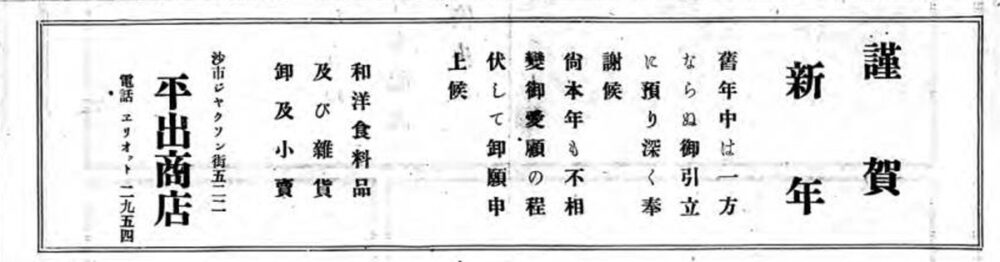 謹賀
新年
舊年中は一方
ならぬ御引立
に預り深く奉
謝候
尙本年も不相
變御愛顧の程
伏して卸願申
上候
和洋食料品
及び雜貨
卸及小賣
沙市ジャクソン街五二二
平出商店
電話 エリオット 二九五四